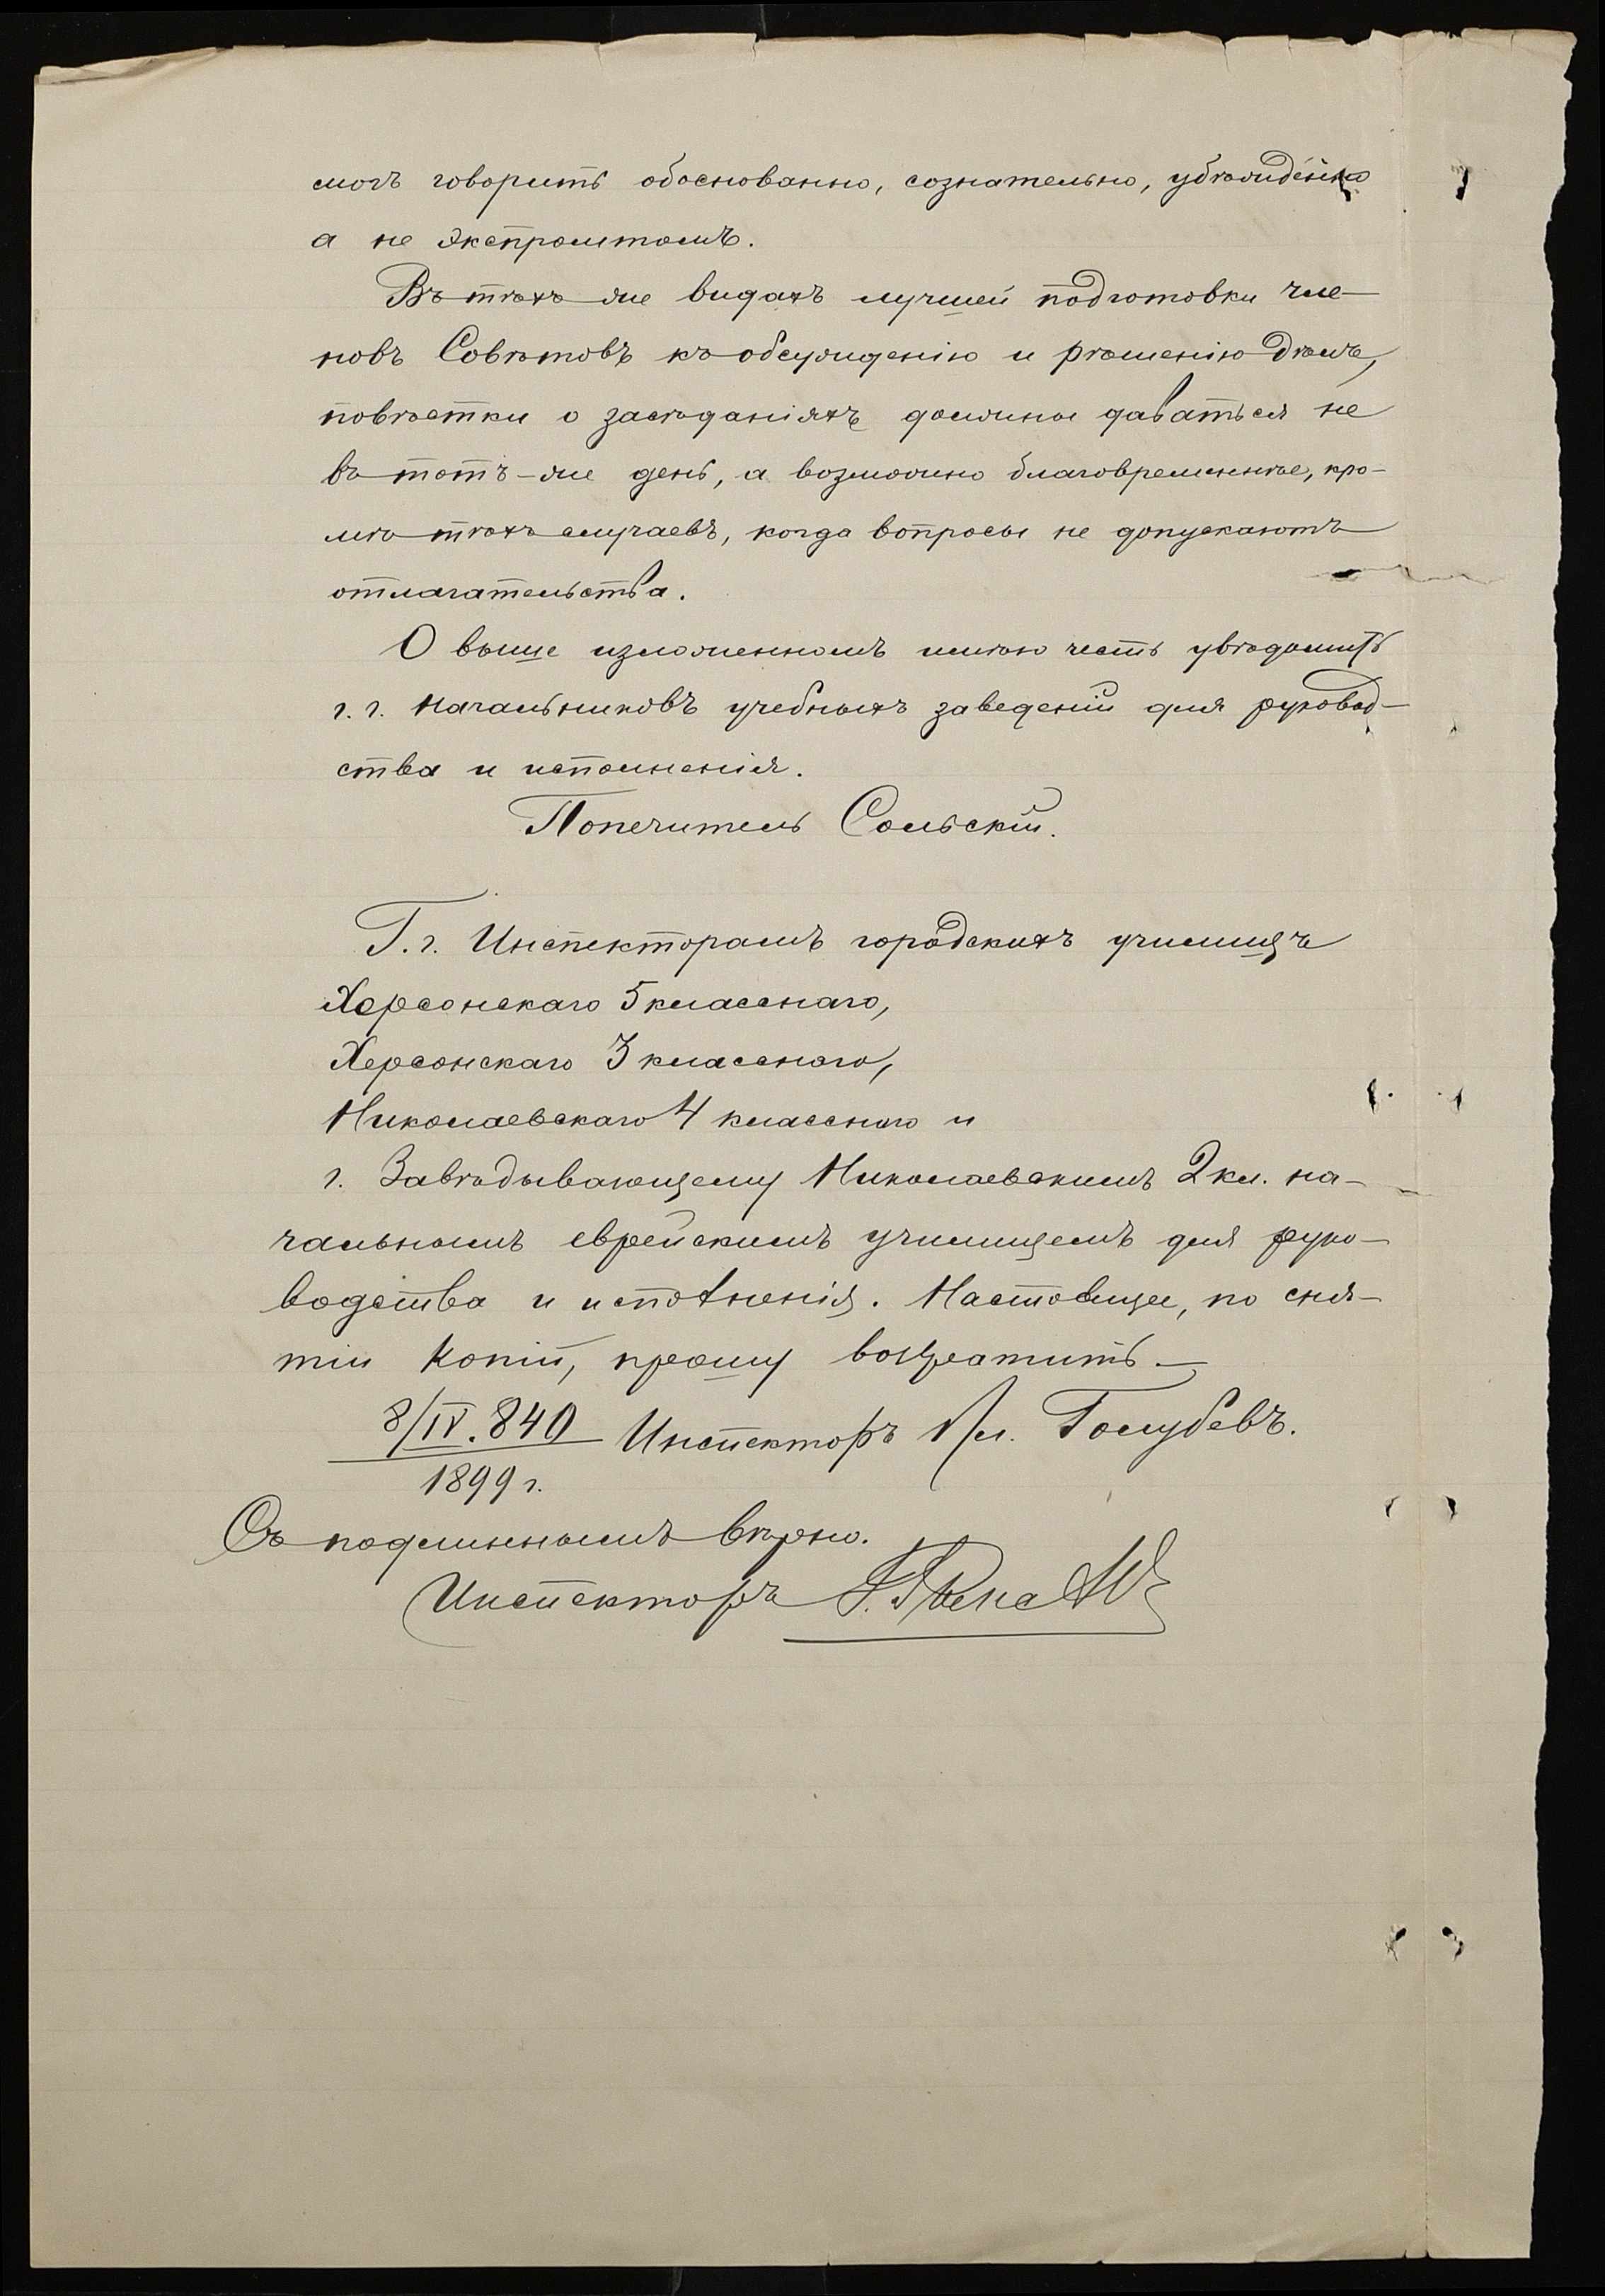 могъ говорить обоснованно, сознательно, убѣжденно
а не экспромтомъ.
Въ тѣхъ же видахъ лучшей подготовки чле-
новъ Совѣтовъ къ обсужденію и рѣшенію дѣлъ,
повѣстки о засѣданіяхъ должны даваться не
въ тотъ-же день, а возможно благовременнѣе, кро-
мѣ тѣхъ случаевъ, когда вопросы не допускаютъ
отлагательства.
О выше изложенномъ имѣю честь увѣдомить
г. г. Начальниковъ учебныхъ заведеній для руковод-
ства и исполненія.
Попечитель Сольскій.
Г. г. Инспекторамъ городскихъ училищъ
Херсонскаго 5 класснаго,
Херсонскаго 3 класснаго,
Николаевскаго 4 класснаго и
г. Завѣдывающему Николаевскимъ 2 кл. на-
чальнымъ еврейскимъ училищемъ для руко-
водства и исполненія. Настоящее, по сня-
тіи копій, прошу возвратить.—
8/IV. 840 Инспекторъ Ал. Голубевъ.
1899 г.
Съ подлиннымъ вѣрно.
Инспекторъ